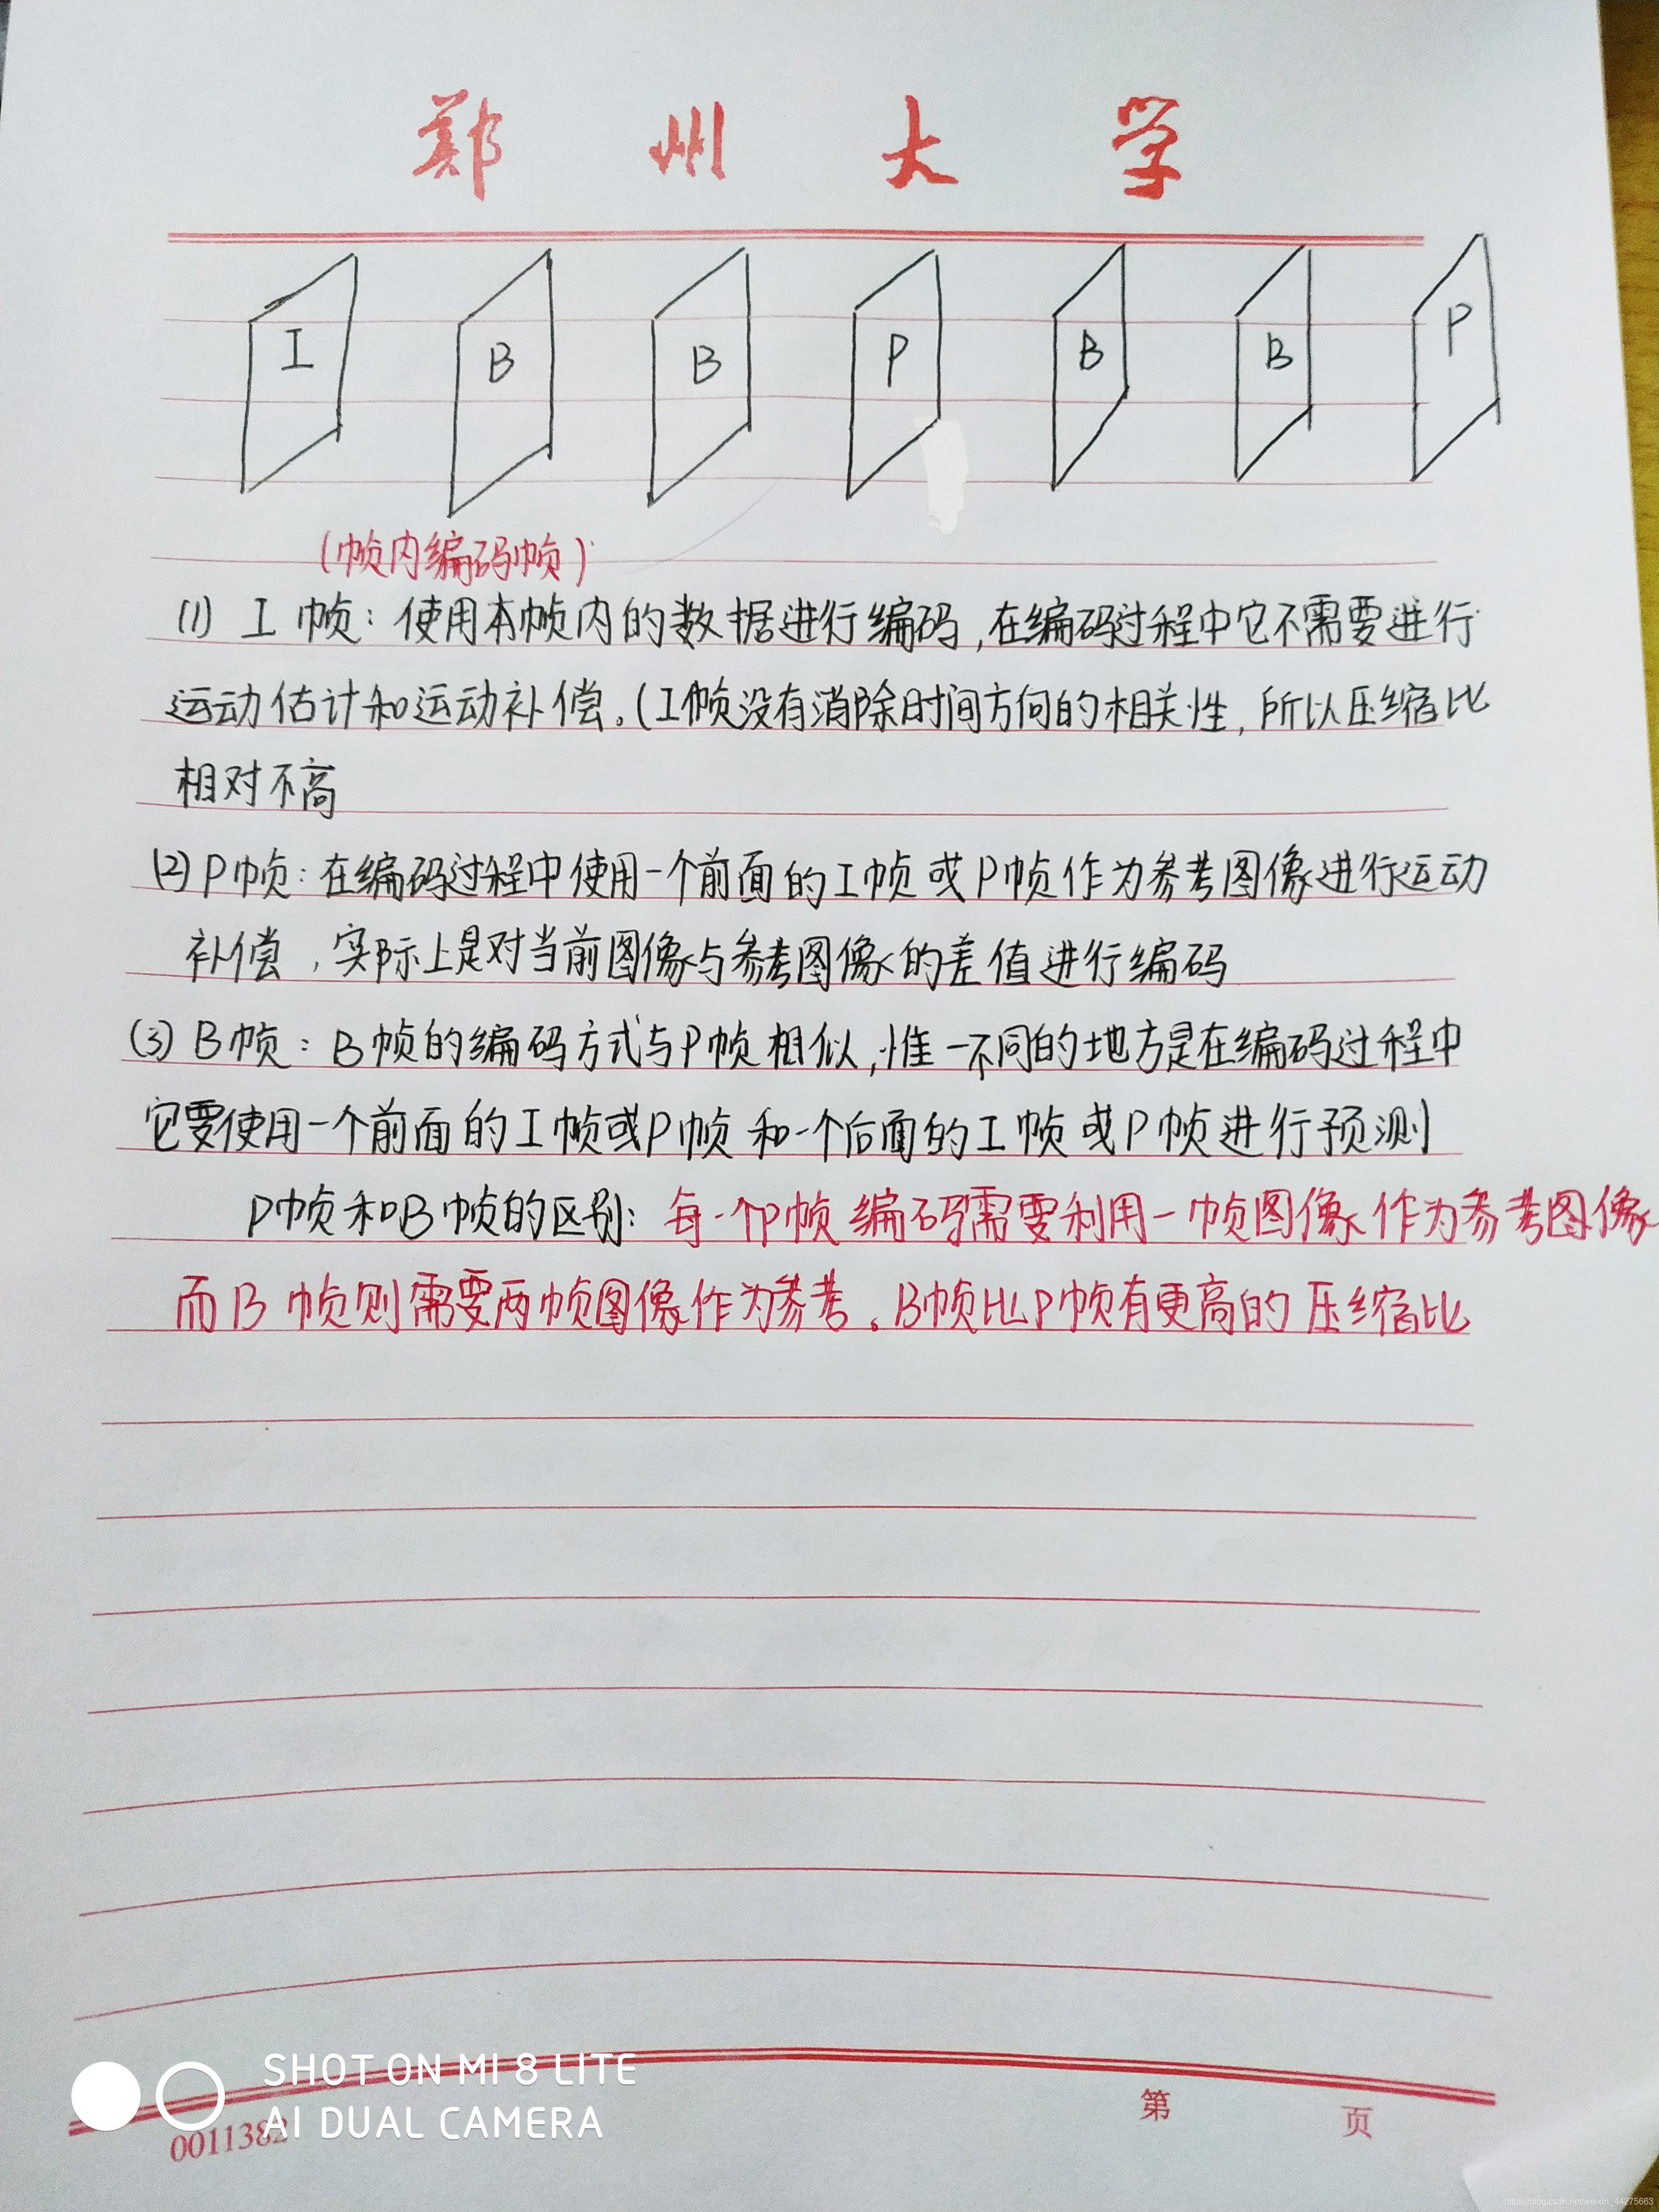 郑州大学
I B B P B B P
(帧内编码帧)
(1) I 帧：使用本帧内的数据进行编码,在编码过程中它不需要进行
运动估计和运动补偿。(I帧没有消除时间方向的相关性,所以压缩比
相对不高
(2) P帧：在编码过程中使用一个前面的I帧或P帧作为参考图像进行运动
补偿,实际上是对当前图像与参考图像的差值进行编码
(3) B帧：B帧的编码方式与P帧相似,惟一不同的地方是在编码过程中
它要使用一个前面的I帧或P帧和一个后面的I帧或P帧进行预测
P帧和B帧的区别：每一个P帧编码需要利用一帧图像作为参考图像
而B帧则需要两帧图像作为参考。B帧比P帧有更高的压缩比
SHOT ON MI 8 LITE
AI DUAL CAMERA
0011382
第 页
https://blog.csdn.net/weixin_44275663